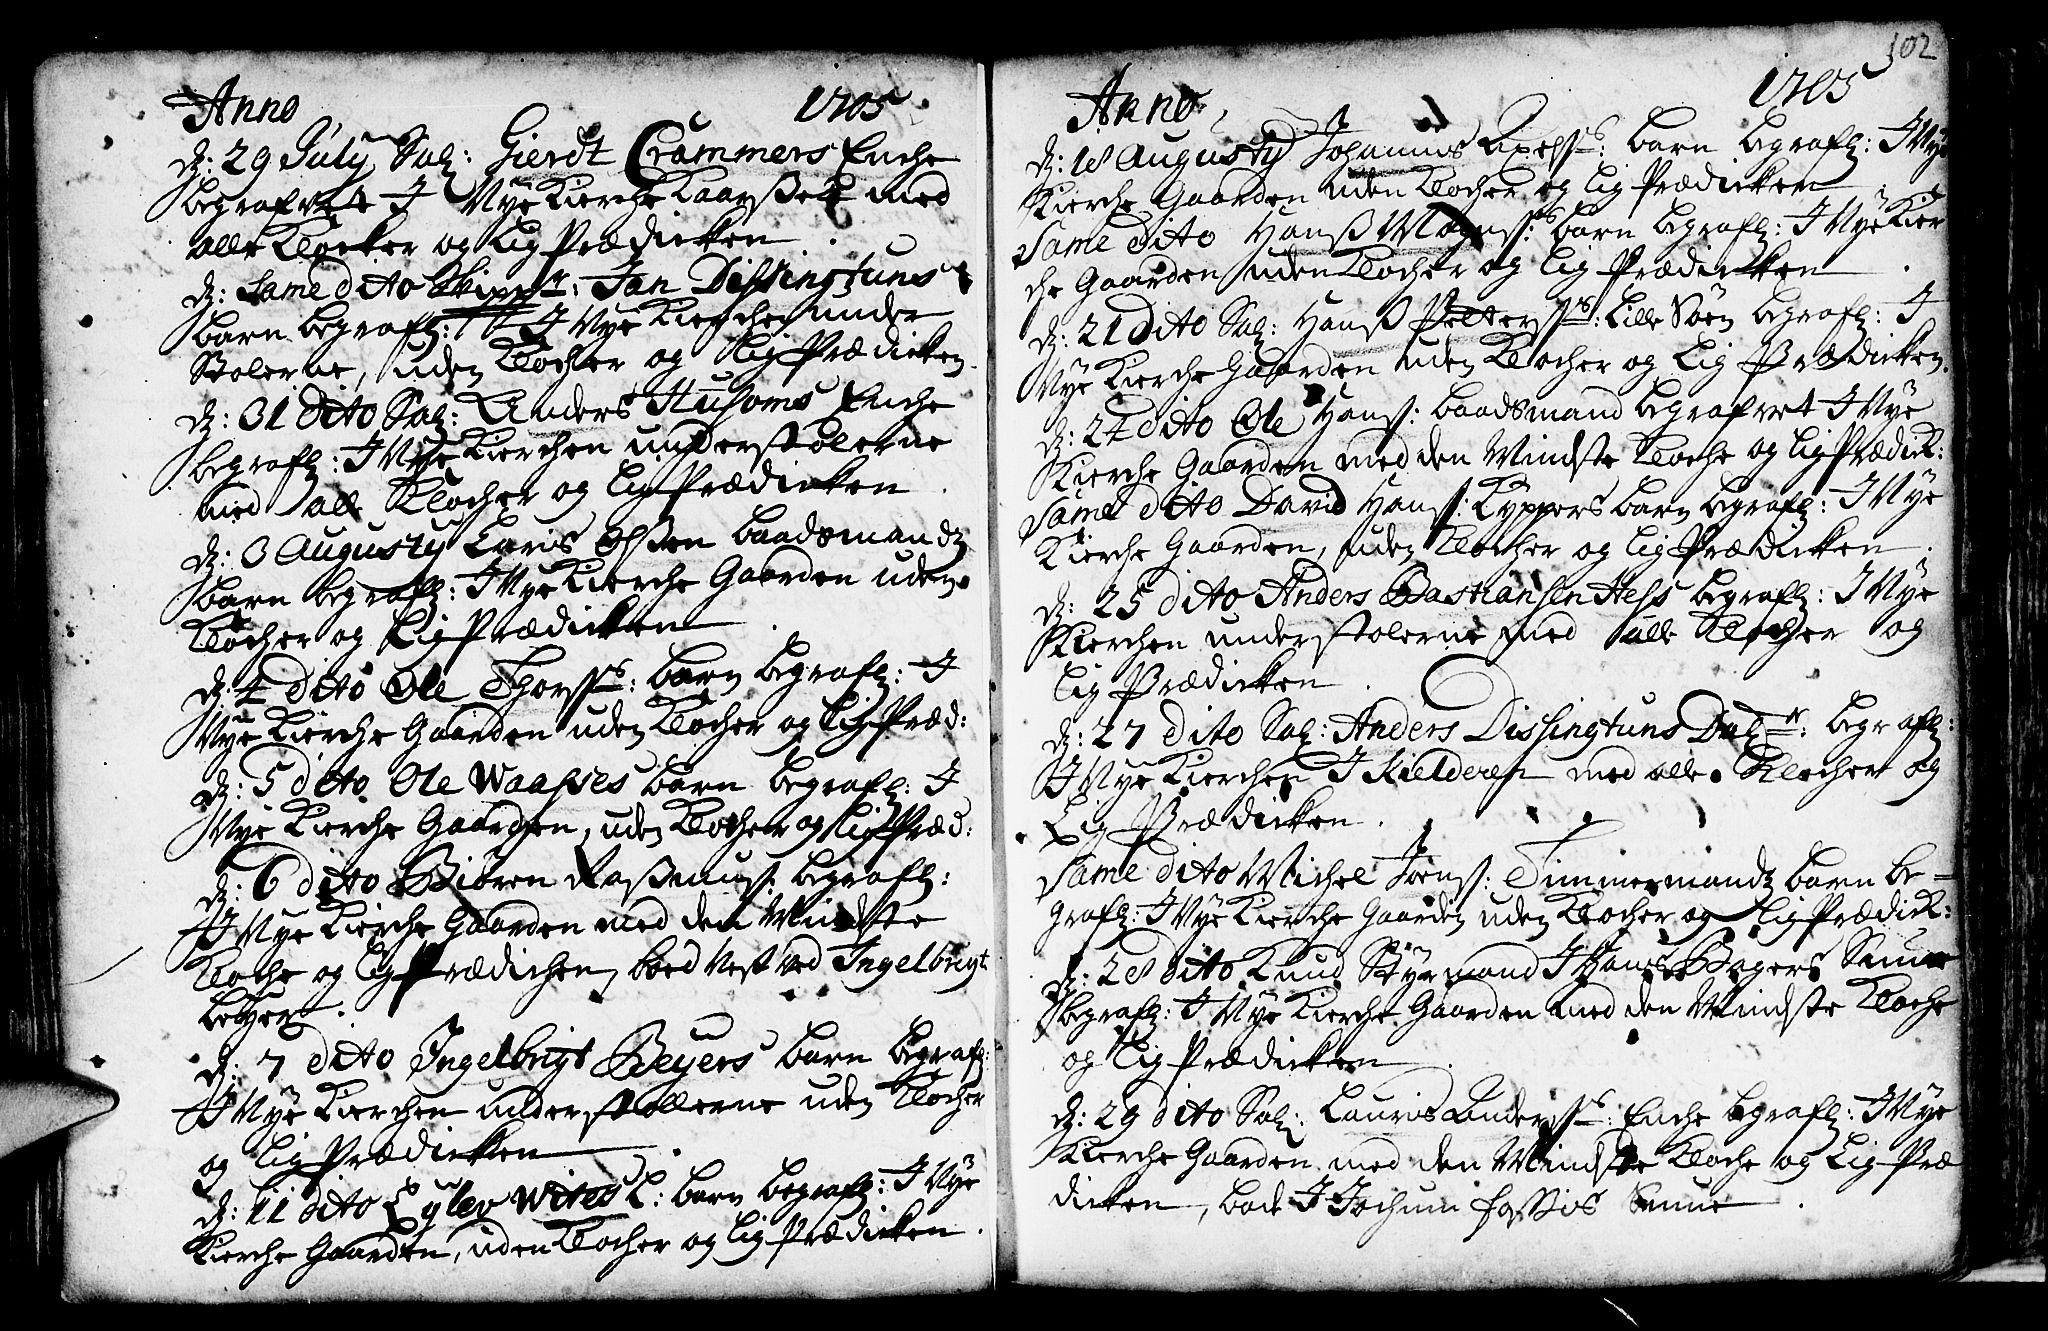 Anno 1705
d: 29 July Sal: Gierdt Crammers Enche
begrafvet I Nye Kierche Kaarßet med
alle Klocker og Lig Prædicken
d: Same dito Skipr: Jan Dissingtuns
barn begrafl: I Nye Kierche under
Stolerne, uden Klocher og Lig Prædicken
d: 31 dito Sal: Anders Husoms Enche
begrafl: I Nye Kierchen under stolerne
med alle Klocher og Lig Prædicken
d: 3 Augusty Laris Olßen baadsmands
barn begrafl: I Nye Kierche Gaarden uden
Klocher og Lig Prædicken
d: 4 dito Ole Thorss: barn begrafl: I
Nye Kierche Gaarden uden Klocher og Lig Præd:
d: 5 dito Ole Waapses barn begrafl: I
Nye Kierche Gaarden, uden Klocher og Lig Præd:
d: 6 dito Biören Raßmuss: begrafl:
I Nye Kierche Gaarden med den Mindste
Kloche og Lig Prædichen, boed Vest ved Ingelbrigt
beyer.
d: 7 dito Ingelbrigt Beyers barn begrafl:
I Nye Kierchen under stollerne uden Klocher
og Lig Prædicken
d: 11 dito Eylev Wites L: barn begrafl: I Nye
Kierche Gaarden, uden Klocher og Lig Prædicken.
102
Anno 1705
d: 18 Augusty Johannis Axelss: barn begrafl: I Nye
Kierche Gaarden uden Klocher og Lig Prædicken
Same dito Hanß Magnss: barn begrafl: I Nye Kier
che Gaarden uden Klocher og Lig Prædicken
d: 21 dito Sal: Hanß Petterss: Lille Sön begrafl: I
Nye Kierche Gaarden uden Klocher og Lig Prædicken.
d: 24 dito Ole Hanss: baadsmand begrafvet I Nye
Kierche Gaarden med den Mindste Kloche og Lig Prædick:
Same dito David Hanss: Kyppers barn begrafl: I Nye
Kierche Gaarden, uden Klocher og Lig Prædicken.
d: 25 dito Anders Bastiansen Hess begrafl: I Nye
Kierchen under stolerne med alle Klocher og
Lig Prædicken.
d: 27 dito Sal: Anders Dissingtuns Datr: begrafl:
I Nye Kierchen I Kielderen med alle Klocher og
Lig Prædicken.
Same dito Michel Joenss: Timmermands barn be-
grafl: I Nye Kierche Gaarden uden Klocher og Lig Prædick:
d: 28 dito Knud Styrmand I Hans Bagers Smue
begrafl: I Nye Kierche Gaarden med den Mindste Kloche
og Lig Prædicken.
d: 29 dito Sal: Lauris Anderss: Enche begrafl: I Nye
Kierche Gaarden med den Mindste Kloche og Lig Præ
dicken, boede I Jochum Smue.